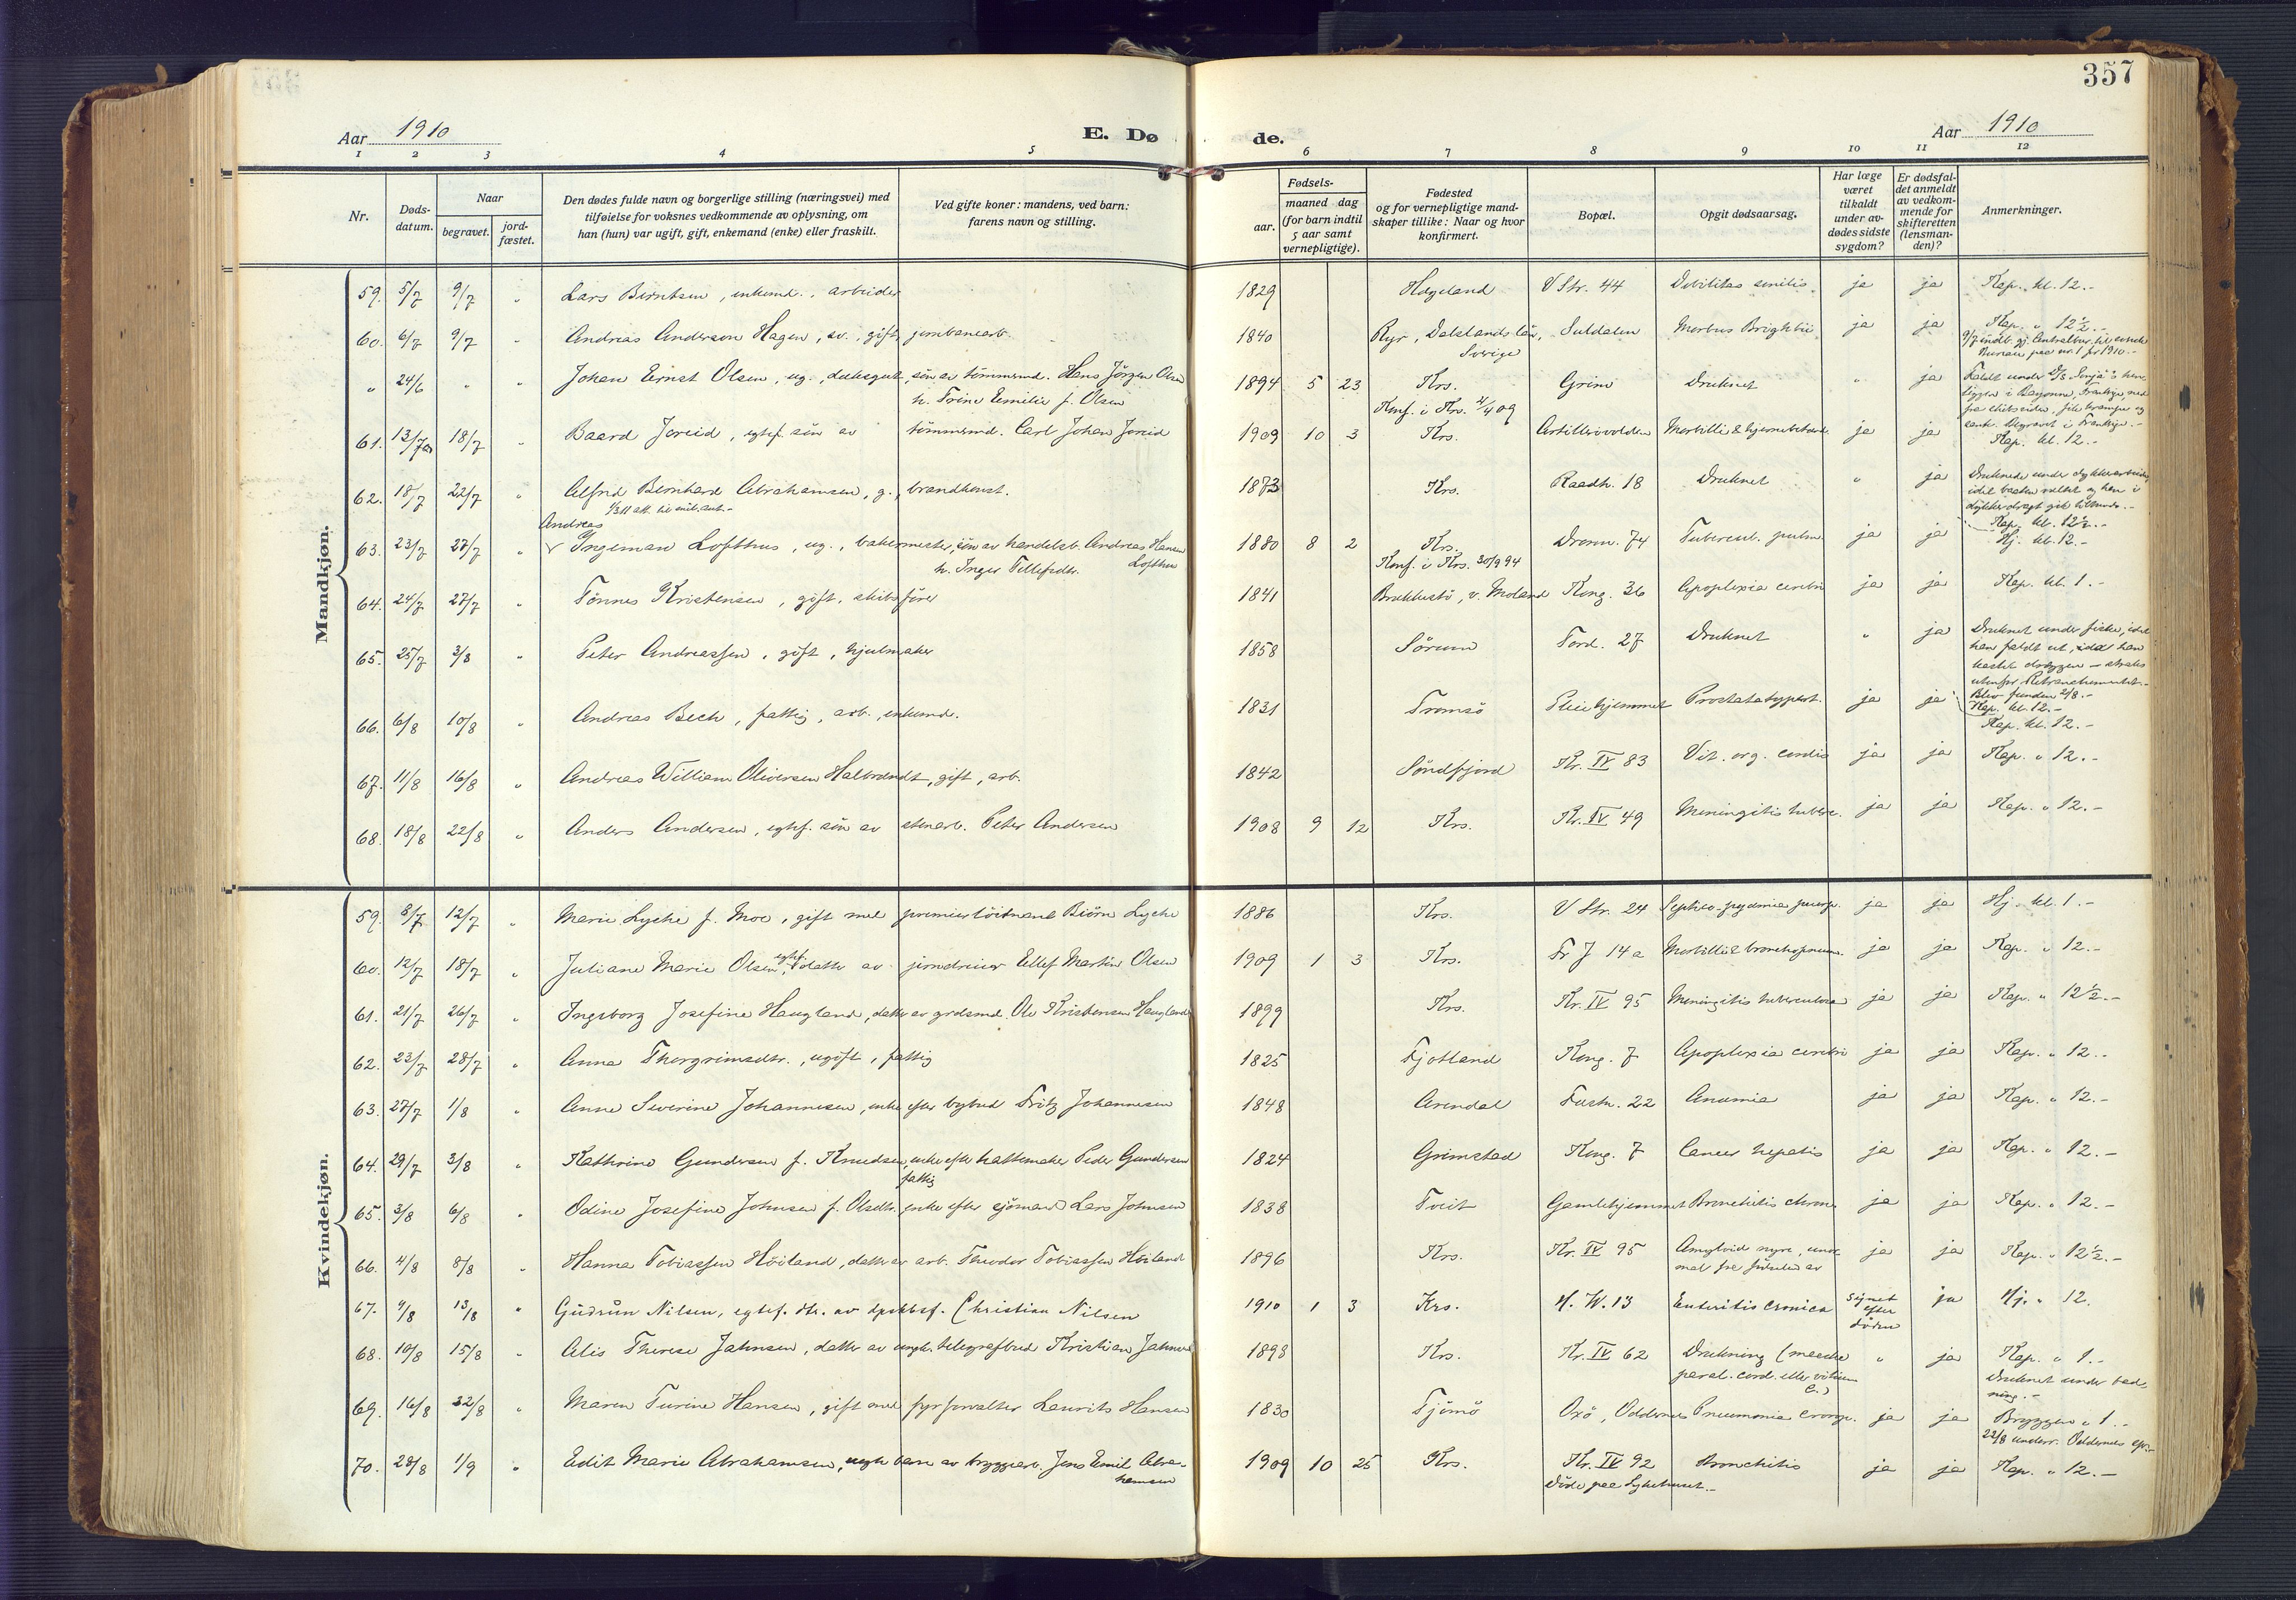 357
Aar 1910
E. Døde.
Aar 1910
1 2 3 4 5 6 7 8 9 10 11 12
Nr.
Døds-
datum.
Naar
begravet.
jord-
fæstet.
Den dødes fulde navn og borgerlige stilling (næringsvei) med
tilføielse for voksnes vedkommende av oplysning, om
han (hun) var ugift, gift, enkemand (enke) eller fraskilt.
Ved gifte koner: mandens, ved barn:
farens navn og stilling.
Fødsels-
aar.
maaned dag
(for barn indtil
5 aar samt
vernepligtige).
Fødested
og for vernepligtige mand-
skaper tillike: Naar og hvor
konfirmert.
Bopæl.
Opgit dødsaarsag.
Har læge
været
tilkaldt
under av-
dødes sidste
sygdom?
Er dødsfal-
det anmeldt
av vedkom-
mende for
skifteretten
(lensman-
den)?
Anmerkninger.
Mandkjøn.
59. 5/7 9/7 " Lars Berntsen, enkemd., arbeider 1829 Hægeland V Str. 44 Debilitas senilis ja ja Kap. kl. 12.-
60. 6/7 9/7 Andreas Anderson Hagen, sv., gift, jernbanearb. 1840 Ryr, Dalslands län, Sverige Suldalen Morbus Brightii ja ja Kap. " 12½.-
" 24/6 " " Johan Ernst Olsen, ug., dæksgut, søn av tømmermd. Hans Jörgen Olsen 1894 5 23 Krs. Grim Druknet " ja
h. Trine Emilie f. Olsen Konf. i Krs. 4/4 09
61. 13/7 18/7 " Baard Joreid, egtef. søn av tømmermd. Carl Johan Joreid 1909 10 3 Krs. Artillerivolden Morbilli & ja ja Kap. kl. 12.-
62. 18/7 22/7 " Alfred Bernhard Abrahamsen, g., brandkonst. 1873 Krs. Raadh. 18 Druknet " ja Kap. kl. 12½.-
Andreas
63. 23/7 27/7 " Ingeman Lofthus, ug., bakermester, søn av handelsb. Andreas Hansen Lofthus 1880 8 2 Krs. Dronn. 74 Tubercul. pulm. ja ja Hj. kl. 12.-
h. Inger Tellefsdtr. Konf. i Krs. 30/9 94
64. 24/7 27/7 " Tönnes Kristensen, gift, skibsfører 1841 Brækkestö, v. Moland Kong. 36 Apoplexia cerebri ja ja Kap. kl. 1.-
65. 25/7 3/8 " Peter Andreassen, gift, hjulmaker 1858 Sörum Tord. 27 Druknet " ja Druknet under fiske, idet
han faldt ut, idet han
Blev funden 2/8.-
Kap. kl. 12.-
66. 6/8 10/8 " Andreas Bech, fattig, arb., enkemd. 1831 Tromsö Pleiehjemmet Prostatahypert. ja ja Kap. kl. 12.-
67. 11/8 16/8 " Andreas William Oliversen Halbrendt, gift, arb. 1842 Söndfjord Kr. IV 83 Vit. org. cordis ja ja Kap. " 12.-
68. 18/8 22/8 " Anders Andersen, egtef. søn av stenarb. Peter Andersen 1908 9 12 Krs. Kr. IV 49 Meningitis tuberc. ja ja Kap. " 12.-
Kvindekjøn.
59. 8/7 12/7 " Marie Lyche f. Moe, gift med premierlöitnand Biörn Lyche 1886 Krs. V Str. 24 ja ja Hj. kl. 1.-
60. 12/7 18/7 " Juliane Marie Olsen, egtef. datter av jerndreier Ellef Martin Olsen 1909 1 3 Krs. Fr J 14 a Morbilli & bronchopneum. ja ja Kap. " 12.-
61. 21/7 26/7 " Ingeborg Josefine Haugland, datter av grdsmd. Ole Kristensen Haugland 1899 Krs. Kr. IV 95 Meningitis tuberculosa ja ja Kap. " 12½.-
62. 23/7 28/7 " Anna Thorgrimsdtr., ugift, fattig 1825 Fjotland Kong. 7 Apoplexia cerebri ja ja Kap. " 12.-
63. 27/7 1/8 " Anne Severine Johannesen, enke efter bybud Fritz Johannesen 1848 Arendal Fæstn. 22 Anæmia ja ja Kap. " 12.-
64. 29/7 3/8 " Kathrine Gundersen f. Knudsen, enke efter hattemaker Peder Gundersen 1824 Grimstad Kong. 7 Cancer hepatis ja ja Kap. " 12.-
fattig
65. 3/8 6/8 " Odine Josefine Johnsen f. Olsdtr. enke efter sjömand Lars Johnsen 1838 Tveit Gamlehjemmet Bronchitis chron. ja ja Kap. " 12.-
66. 4/8 8/8 " Hanna Tobiassen Höiland, datter av arb. Theodor Tobiassen Höiland 1896 Krs. Kr. IV 95 Amyloid nyre ja ja Kap. " 12½.-
67. 9/8 13/8 " Gudrun Nilsen, egtef. dtr. av Christian Nilsen 1910 1 3 Krs. H. W. 13 Enteritis cronica Synet efter döden ja Hj. " 12.
68. 10/8 15/8 " Alis Therese Jahnsen, datter av telegrafbud Kristian Jahnsen 1898 Krs. Kr. IV 62 Drukning (maaske paral. cord. eller vitium c.) " ja Kap. " 1.-
Druknet under bad-
ning.-
69. 16/8 22/8 " Maren Turine Hansen, gift med fyrforvalter Laurits Hansen 1830 Tjömö Oxö, Oddernes Pneumonia croup. ja ja Bryggen " 1.-
22/8 underr. Oddernes
70. 28/8 1/9 " Edit Marie Abrahamsen, uegte barn av bryggearb. Jens Emil Abra-
hamsen 1909 10 25 Krs. Kr. IV 92 Bronchitis ja ja Kap. " 12.-
Döde paa Sykehuset.-